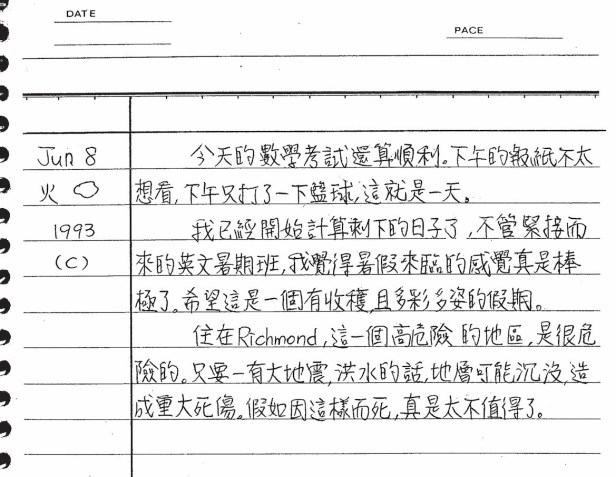 DATE
PACE
Jun 8 今天的數學考試還算順利。下午的報紙不太
火 想看,下午又打了一下籃球,這就是一天。
1993 我已經開始計算剩下的日子了,不管緊接而
(C) 來的英文暑期班,我覺得暑假來臨的感覺真是棒
極了。希望這是一個有收穫,且多彩多姿的假期。
住在Richmond,這一個高危險的地區,是很危
險的。只要一有大地震,洪水的話,地層可能沉沒,造
成重大死傷。假如因這樣而死,真是太不值得了。